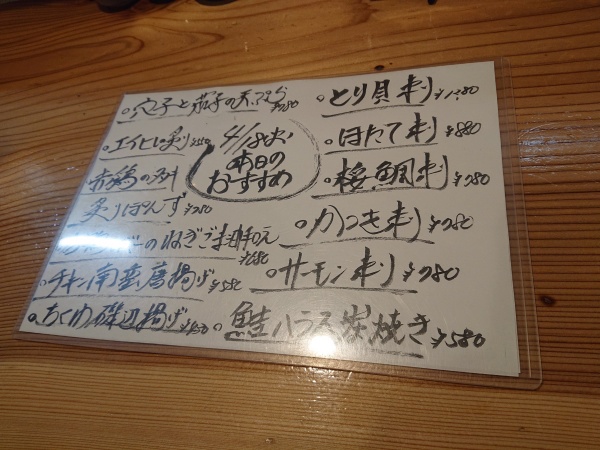 4/18(火)
本日の
おすすめ
。穴子と茄子の天ぷら
。エイヒレ炙り
赤鶏の
炙りぽんず
のねぎごま和え
。チキン南蛮唐揚げ ¥580
。ちくわ磯辺揚げ
。とり貝刺 ¥1,280
。ほたて刺 ¥880
。桜鯛刺 ¥780
。かつお刺 ¥780
。サーモン刺 ¥780
。鮭ハラス炭焼き ¥580